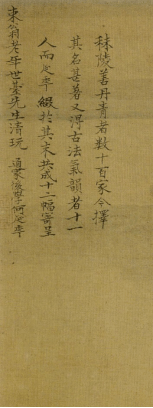 秣陵善丹青者數十百家今擇
其名甚著又得古法氣韻者十一
人而之率綴於其末共成十二幅寄呈
東翁老年世臺先生清玩